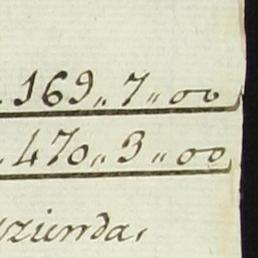 169,, 7,, 00
470,, 3,, 00
zienda,